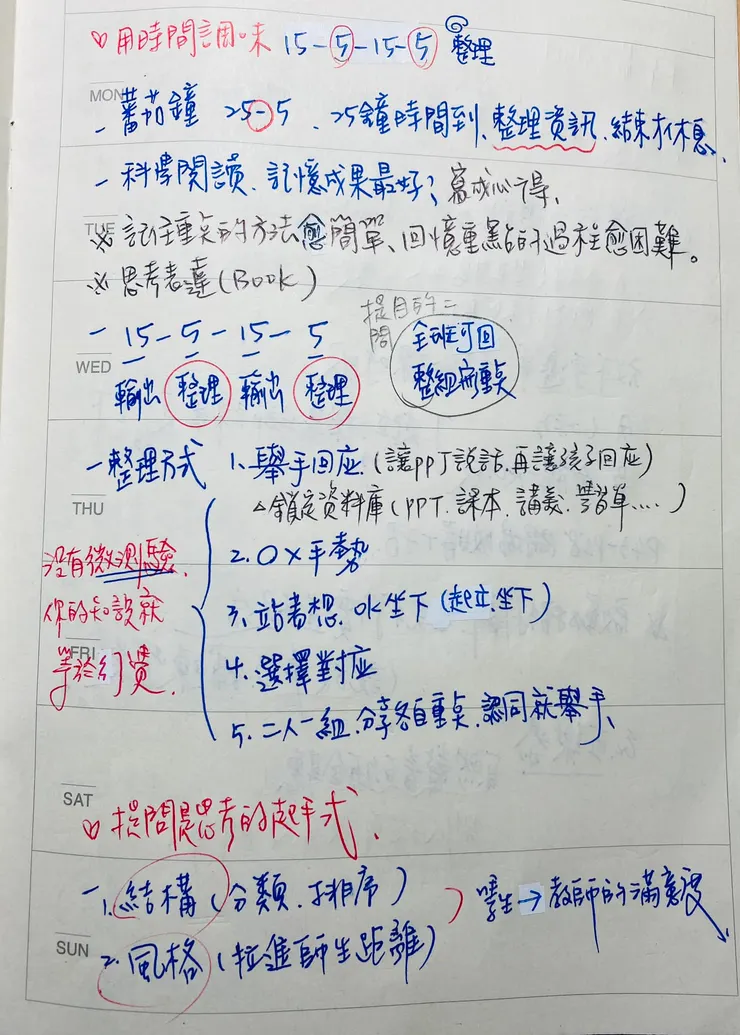 ♡用時間調味 15-5-15-5 整理
MON
- 蕃茄鐘 25-5、25鐘時間到、整理資訊、結束才休息、
- 科學閱讀、記憶成果最好; 寫成心得、
TUE
※ 記住重点的方法愈簡單、回憶重點的過程愈困難。
※ 思考表達(Book)
- 15-5-15-5
提問的二
問
全班可回
整組有重点
WED
輸出 整理 輸出 整理
- 整理方式 1. 舉手回应.(讓PPT說話.再讓孩子回应)
THU
△鎖定資料庫(PPT.課本.講義.學習單....)
沒有微測驗
你的知識就
等於幻覺.
2. O X 手勢
3. 站著想. ok坐下 (起立.坐下)
FRI
4. 選擇對应
5. 二人一組.分享各自重点.認同就舉手、
SAT
♡提問是思考的起手式.
- 1. 結構 (分類.排序)
學生→教師的滿意度
SUN
2. 風格 (拉進師生距離)